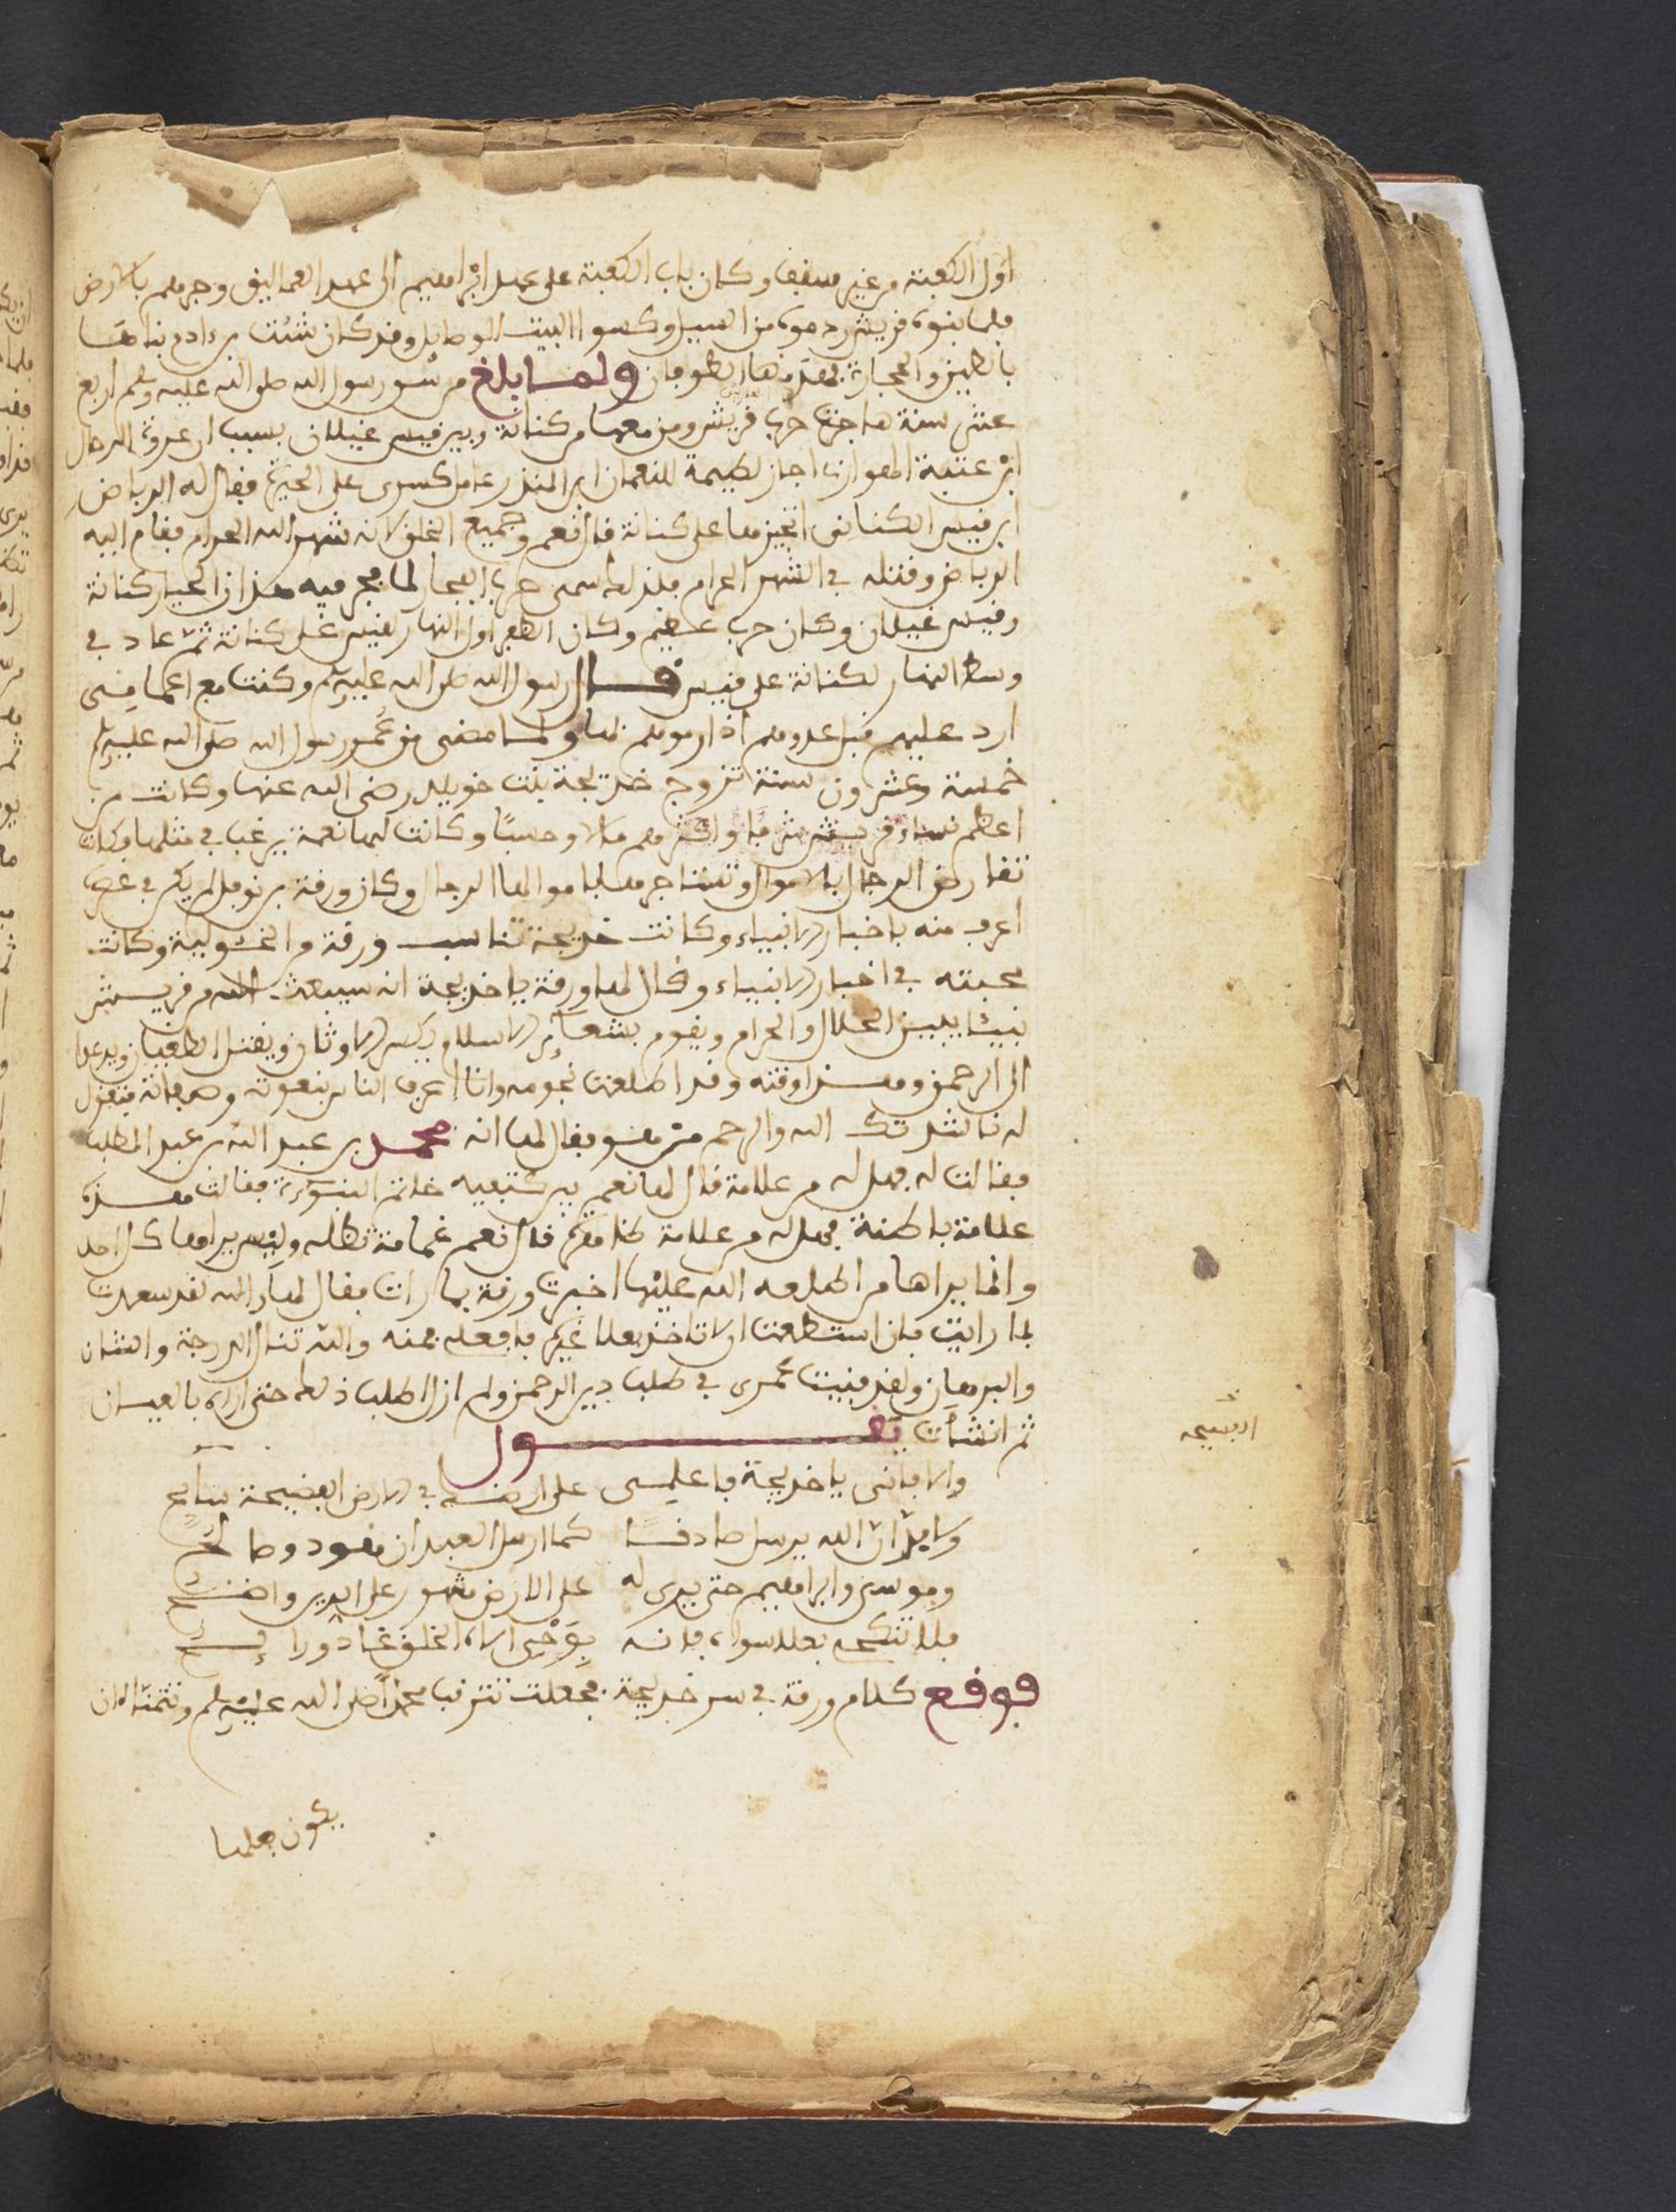 اول الكعبة من غير سقف وكان باب الكعبة على عهد ابراهيم الى عهد العماليق وجرهم بالارض
فلما بنوه قريش ردموه من السيل وكسوا البيت الوصايل وقد كان شئت بن ءادم بناها
بالطين والحجارة فهدمها الطوفان ولما بلغ من سن رسول الله صلى الله عليه وسلم اربع
عشر سنة هاجت حرب قريش ومن معها من كنانة وبين قيس غيلان بسبب ان عروة الرحال
ابن عتبة الهوازني اجاز لطيمة للنعمان ابن المنذر عامل كسرى على الحيرة فقال له البراض
ابن قيس الكناني اتجيزها على كنانة قال نعم وجميع الخلق لانه شهر الله الحرام فقام اليه
البراض وقتله في الشهر الحرام فلذلك سمي حرب الفجار لما فجر فيه هذان الحيان كنانة
وقيس غيلان وكان حرب عظيم وكان الظفر اول النهار لقيس على كنانة ثم عاد في
وسط النهار لكنانة على قيس قال رسول الله صلى الله عليه وسلم وكنت مع اعمامي
ارد عليهم نبل عدوهم اذا رموهم بها ولما مضى من عمر رسول الله صلى الله عليه وسلم
خمسة وعشرون سنة تزوج خديجة بنت خويلد رضي الله عنها وكانت من
اعظم نساء قريش شرفا واكثرهم مالا وحسبا وكانت لها نعمة يرغب في مثلها وكانت
تقارض الرجال بالاموال وتستاجرها باموالها الرجال وكان ورقة بن نوفل لم يكن في عصره
اعرف منه باخبار الانبياء وكانت خديجة تناسب ورقة من الخئولية وكانت
محبته في اخبار الانبياء وقال لها ورقة يا خديجة انه سيبعث الله من قريش
نبيئا يبين الحلال والحرام ويقوم بشعائر الاسلام ويكسر الاوثان ويقتل الطغيان ويدعوا
الى الرحمن وهذا وقته وقد اطلعت نجومه وانا اعرف الناس بنعوته وصفاته فتقول
له ناشدتك الله والرحم من هو فقال لها انه محمد بن عبد الله بن عبد المطلب
فقالت له فهل له من علامة قال لها نعم بين كتفيه خاتم النبوءة فقالت هذه
علامة باطنة فهل له من علامة ظاهرة قال نعم غمامة تظله وليس يراها كل احد
وانما يراها من اطلعه الله عليها اخبرت ورقة بما رات فقال لها والله لقد سعدت
بما رايت فان استطعت الا تاخذ بعلا غيره فافعله فمنه والله تنال الدرجة والشان
والبرهان ولقد فنيت عمري في طلب دين الرحمن ولم ازل اطلب ذلك حتى اراه بالعيان
ثم انشأت يقول
والا فاني يا خديجة فاعلمي على ارضه في الارض الفسيحة سايح
ولابد ان الله يرسل صادقا كما ارسل العبدان هود وصالح
وموسى وابراهيم حتى يرى له على الارض مشهور على الدين واضح
فلا تنكحه بعلا سواه فانه
فوقع كلام ورقة في سر خديجة فجعلت تترقب محمدا صلى الله عليه وسلم وتتمنا ان
يكون بعلها